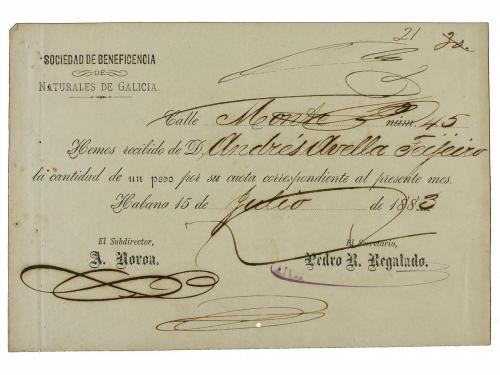 21 
SOCIEDAD DE BENEFICENCIA
DE
NATURALES DE GALICIA.
Calle Monte núm. 45
Hemos recibido de D. Andrés Avella Teijeiro
la cantidad de un peso por su cuota correspondiente al presente mes.
Habana 15 de Julio de 1883
El Subdirector, El Secretario,
A. Novoa. Pedro R. Regalado.